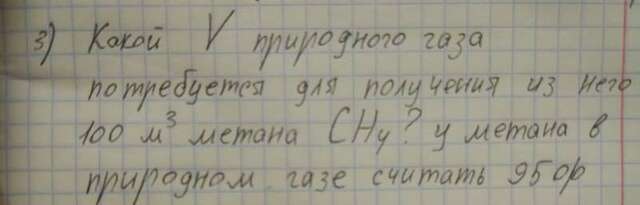 3) Какой V природного газа
потребуется для получения из него
100 м³ метана CH₄? φ метана в
природном газе считать 95 %